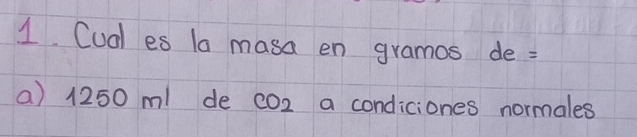 1. Cual es la masa en gramos de =
a) 1250 ml de CO2 a condiciones normales